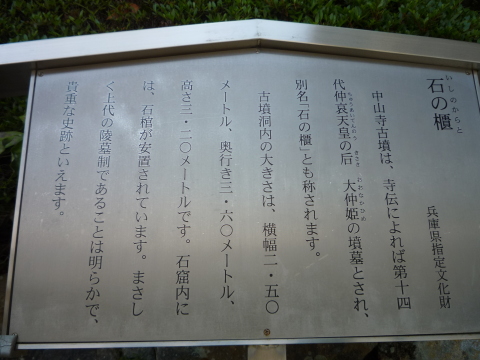 石の櫃
いしのからと
兵庫県指定文化財
中山寺古墳は、寺伝によれば第十四
代仲哀天皇の后 大仲姫の墳墓とされ、
ちゅうあいてんのう きさき おおなかつひめ
別名「石の櫃」とも称されます。
古墳洞内の大きさは、横幅二・五〇
メートル、奥行き三・六〇メートル、
高さ三・二〇メートルです。石窟内に
は、石棺が安置されています。まさし
く上代の陵墓制であることは明らかで、
貴重な史跡といえます。